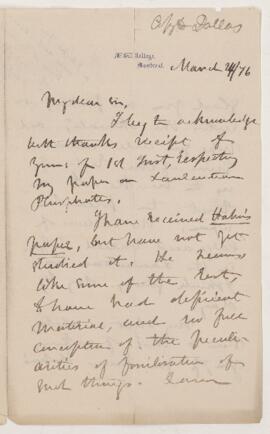 McGill College,
Montreal.
March 24/76
My dear Sir,
I beg to acknowledge
with thanks receipt of
yours of 1st Inst, respecting
my paper on Laurentian
Phosphates.
I have received Hahn's
paper, but have not yet
studied it. He seems
like some of the rest,
to have had deficient
material, and no full
conception of the peculi-
arities of fossilization of
such things.